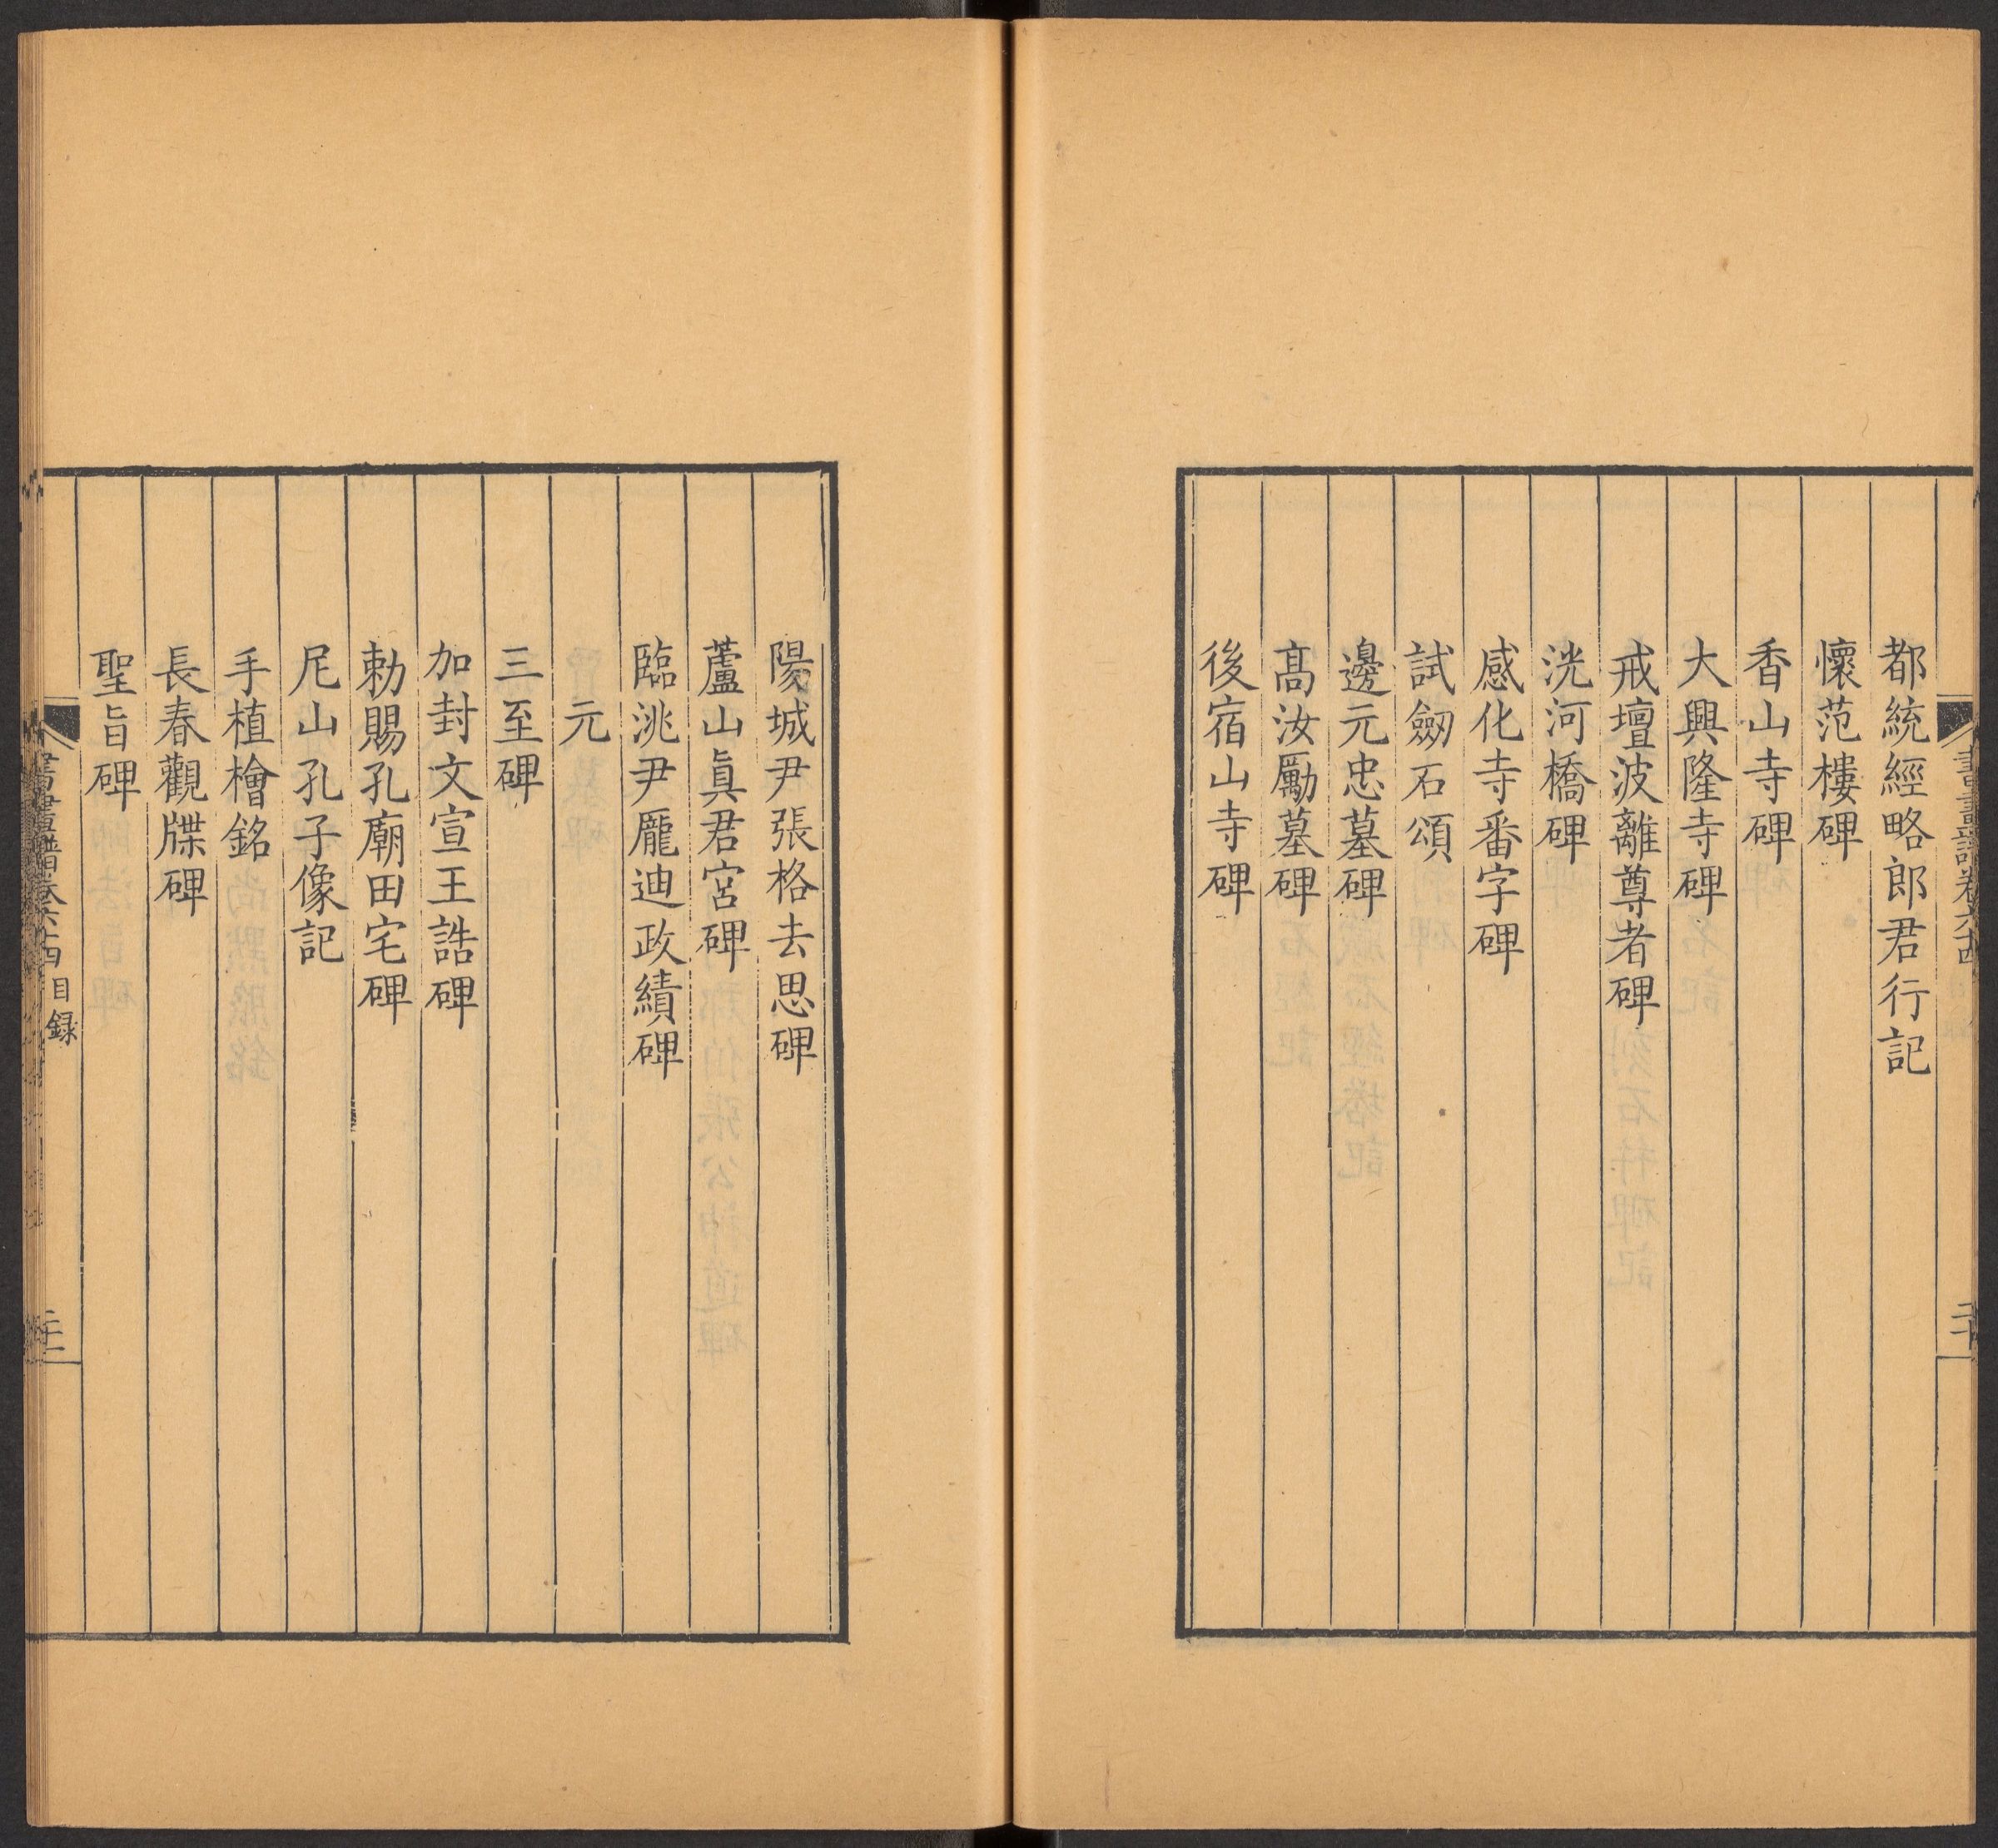 都統經略郎君行記
懷范樓碑
香山寺碑
大興隆寺碑
戒壇波離尊者碑
洸河橋碑
感化寺番字碑
試劒石頌
邊元忠墓碑
髙汝勵墓碑
後宿山寺碑
陽城尹張格去思碑
蘆山眞君宮碑
臨洮尹龎迪政績碑
元
三至碑
加封文宣王誥碑
勅賜孔廟田宅碑
尼山孔子像記
手植檜銘
長春觀牒碑
聖旨碑
書畫譜卷六十四 目録